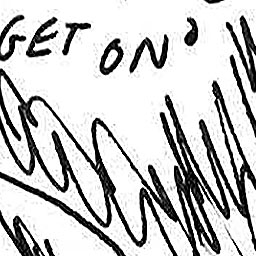 GET ON